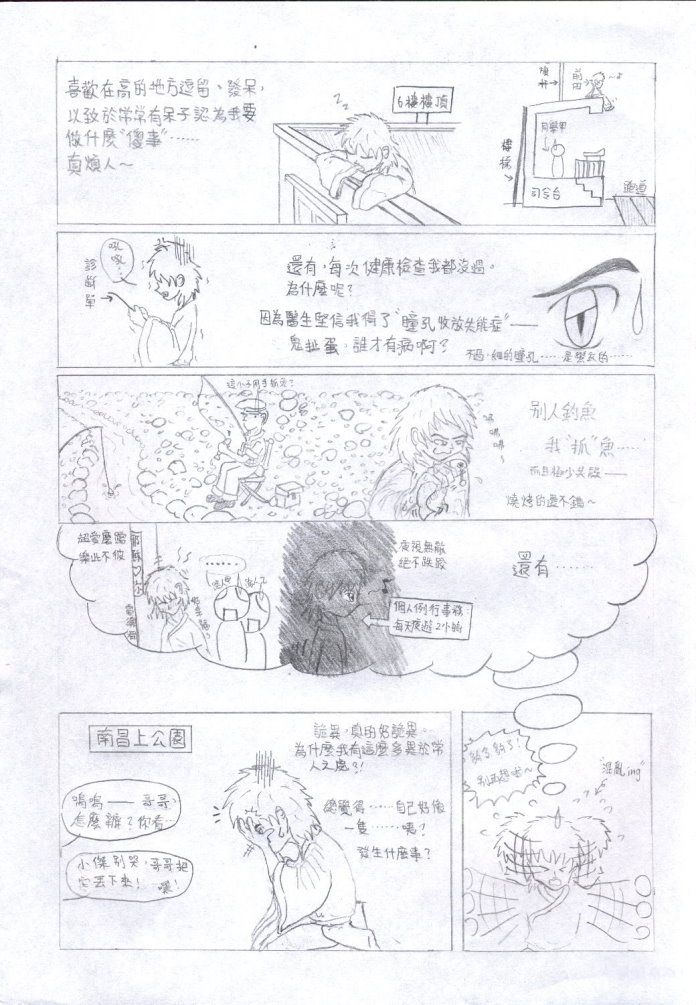 喜歡在高的地方逗留、發呆,
以致於常常有呆子認為我要
做什麼"傻事"……
真煩人~
zz
6樓樓頂
前田
同學甲
樓梯
司令台
跑道
吼吼…
診斷單
還有,每次健康檢查我都沒過。
為什麼呢?
因為醫生堅信我得了"瞳孔收放失能症"——
鬼扯蛋,誰才有病啊?
這小子用手抓魚?
別人釣魚
我"抓"魚……
而且極少失敗——
燒烤的還不錯~
超愛磨蹭
樂此不疲
電線桿
……
夜視無敵
絕不跌跤
個人例行事務:
每天夜遊2小時
還有……
南昌上公園
嗚嗚——哥哥,
怎麼辦?你看…
小傑別哭,哥哥把
它丟下來!嘿!
詭異,真的好詭異。
為什麼我有這麼多異於常
人之處?!
總覺得……自己好像
一隻……咦?
發生什麼事?
夠了夠了!
別再想啦~
"混亂ing"